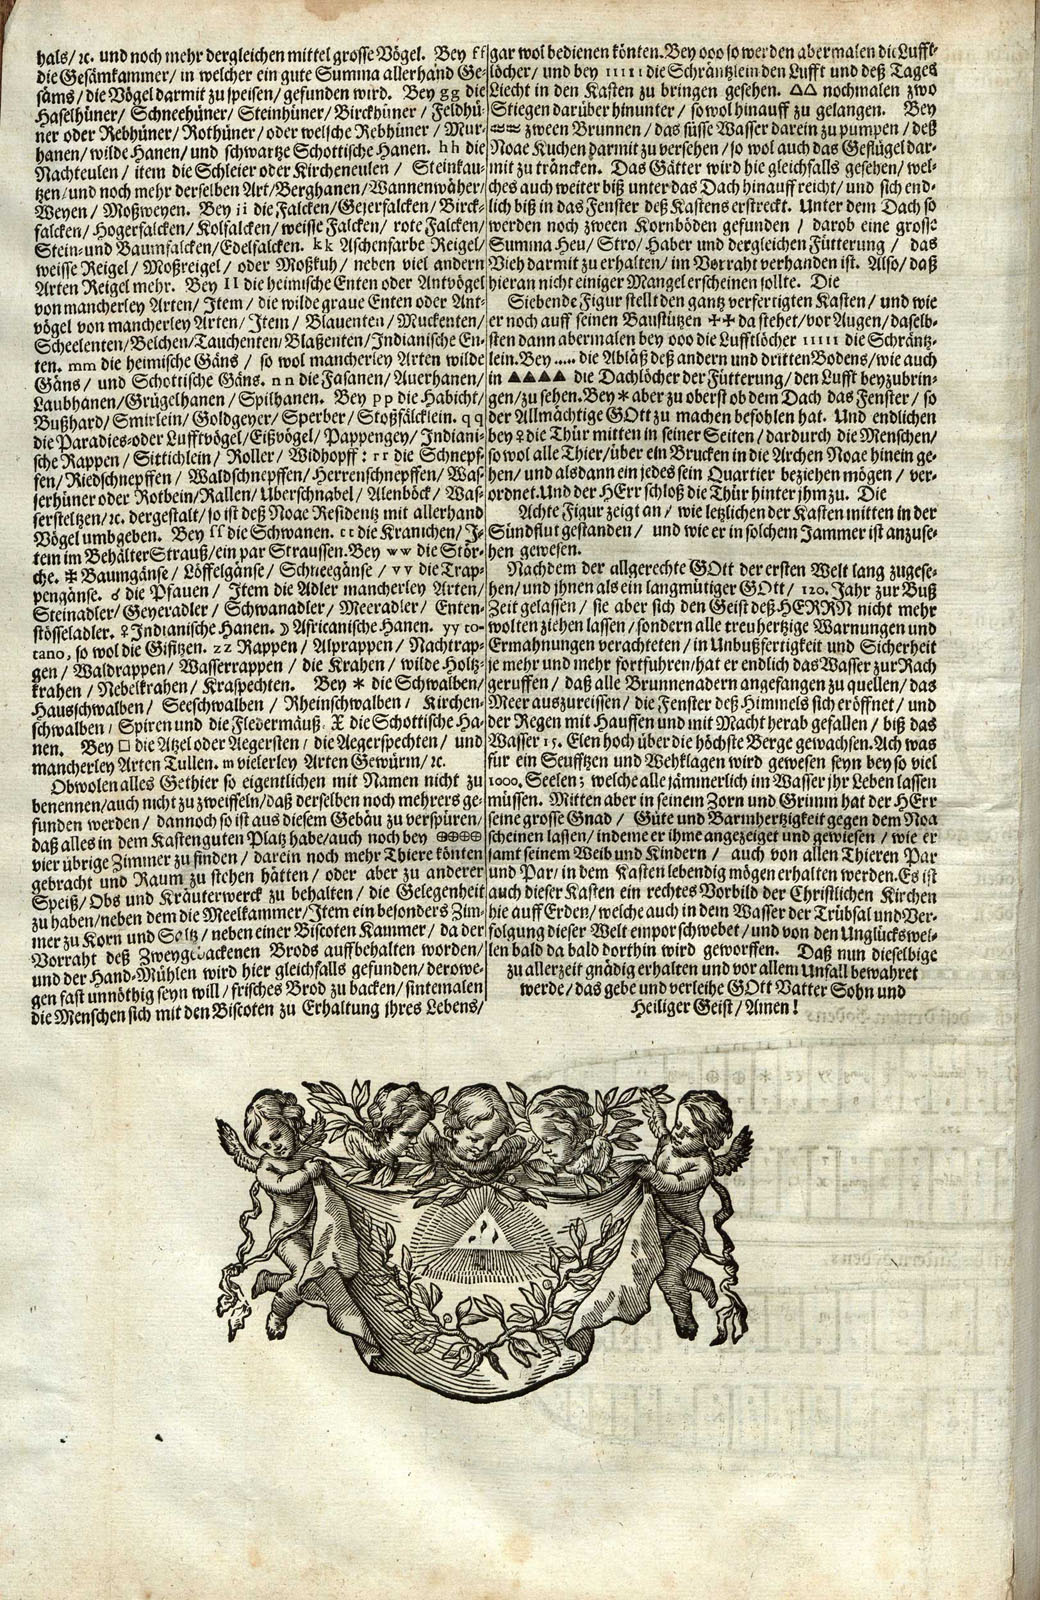 hals/ ꝛc. und noch mehr dergleichen mittel grosse Vögel. Bey ff
die Gesämkammer/ in welcher ein gute Summa allerhand Ge-
säms/ die Vögel darmit zu speisen/ gefunden wird. Bey gg die
Haselhüner/ Schneehüner/ Steinhüner/ Birckhüner/ Feldhü-
ner oder Rebhüner/ Rothüner/ oder welsche Rebhüner/ Mur-
hanen/ wilde Hanen/ und schwartze Schottische Hanen. hh die
Nachteulen/ item die Schleier oder Kircheneulen/ Steinkau-
tzen/ und noch mehr derselben Art/ Berghanen/ Wannenwäher/
Weyen/ Moßweyen. Bey ii die Falcken/ Gezerfalcken/ Birck-
falcken/ Hogerfalcken/ Kolfalcken/ weisse Falcken/ rote Falcken/
Stein- und Baumfalcken/ Edelfalcken. kk Aschenfarbe Reigel/
weisse Reigel/ Moßreigel/ oder Moßkuh/ neben viel andern
Arten Reigel mehr. Bey ll die heimische Enten oder Antvögel
von mancherley Arten/ Item/ die wilde graue Enten oder Ant-
vögel von mancherley Arten/ Item/ Blauenten/ Muckenten/
Scheelenten/ Belchen/ Tauchenten/ Blaßenten/ Indianische En-
ten. mm die heimische Gäns/ so wol mancherley Arten wilde
Gäns/ und Schottische Gäns. nn die Fasanen/ Auerhanen/
Laubhanen/ Grügelhanen/ Spilhanen. Bey pp die Habicht/
Bußhard/ Smirlein/ Goldgeyer/ Sperber/ Stoßfälcklein. qq
die Paradies- oder Lufftvögel/ Eißvögel/ Pappengey/ Indiani-
sche Rappen/ Sittichlein/ Roller/ Widhopff: rr die Schnepf-
fen/ Riedschnepffen/ Waldschnepffen/ Herrenschnepffen/ Was-
serhüner oder Rotbein/ Rallen/ Überschnabel/ Alenböck/ Was-
serstelzen/ ꝛc. dergestalt/ so ist deß Noae Residentz mit allerhand
Vögel umbgeben. Bey ss die Schwanen. tt die Kranichen/ J-
tem im Behälter Strauß/ ein par Straussen. Bey ww die Stör-
che. ✠ Baumgänse/ Löffelgänse/ Schneegänse/ vv die Trap-
pengänse. ♂ die Pfauen/ Item die Adler mancherley Arten/
Steinadler/ Geyeradler/ Schwanadler/ Meeradler/ Enten-
stösseladler. ♀ Indianische Hanen. ☽ Africanische Hanen. yy to-
tano, so wol die Gifitzen. zz Rappen/ Alprappen/ Nachtrap-
gen/ Waldrappen/ Wasserrappen/ die Krahen/ wilde Holtz-
krahen/ Nebelkrahen/ Kraspechten. Bey * die Schwalben/
Hausschwalben/ Seeschwalben/ Rheinschwalben/ Kirchen-
schwalben/ Spiren und die Fledermäuß. X die Schottische Ha-
nen. Bey □ die Atzel oder Aegersten/ die Aegerspechten/ und
mancherley Arten Tullen. m vielerley Arten Gewürm/ ꝛc.
Obwolen alles Gethier so eigentlichen mit Namen nicht zu
benennen/ auch nicht zu zweiffeln/ daß derselben noch mehrers ge-
funden werden/ dannoch so ist aus diesem Gebäu zu verspüren/
daß alles in dem Kasten guten Platz habe/ auch noch bey ⊕⊕⊕⊕
vier übrige Zimmer zu finden/ darein noch mehr Thiere könten
gebracht und Raum zu stehen hätten/ oder aber zu anderer
Speiß/ Obs und Kräuterwerck zu behalten/ die Gelegenheit
zu haben/ neben dem die Meelkammer/ Item ein besonders Zim-
mer zu Korn und Saltz/ neben einer Biscoten Kammer/ da der
Vorraht deß Zweygebackenen Brods auffbehalten worden/
und der Hand-Mühlen wird hier gleichfalls gefunden/ derowe-
gen fast unnöthig seyn will/ frisches Brod zu backen/ sintemalen
die Menschen sich mit den Biscoten zu Erhaltung ihres Lebens/
gar wol bedienen könten. Bey ooo so werden abermalen die Lufft-
löcher/ und bey 11111 die Schräntzlein den Lufft und deß Tages
Liecht in den Kasten zu bringen gesehen. △△ nochmalen zwo
Stiegen darüber hinunter/ so wol hinauff zu gelangen. Bey
≈≈ zween Brunnen/ das süsse Wasser darein zu pumpen/ deß
Noae Kuchen darmit zu versehen/ so wol auch das Geflügel dar-
mit zu träncken. Das Gätter wird hie gleichfalls gesehen/ wel-
ches auch weiter biß unter das Dach hinauff reicht/ und sich end-
lich biß in das Fenster deß Kastens erstreckt. Unter dem Dach so
werden noch zween Kornböden gefunden/ darob eine grosse
Summa Heu/ Stro/ Haber und dergleichen Fütterung/ das
Vieh darmit zu erhalten/ im Vorraht verhanden ist. Also/ daß
hieran nicht einiger Mangel erscheinen sollte. Die
Siebende Figur stellt den gantz verfertigten Kasten/ und wie
er noch auff seinen Baustützen ✢✢ da stehet/ vor Augen/ daselb-
sten dann abermalen bey ooo die Lufftlöcher 11111 die Schräntz-
lein. Bey ..... die Abläß deß andern und dritten Bodens/ wie auch
in ▲▲▲▲ die Dachlöcher der Fütterung/ den Lufft beyzubrin-
gen/ zu sehen. Bey * aber zu oberst ob dem Dach das Fenster/ so
der Allmächtige GOtt zu machen befohlen hat. Und endlichen
bey ♀ die Thür mitten in seiner Seiten/ dardurch die Menschen/
so wol alle Thier/ über ein Brucken in die Archen Noae hinein ge-
hen/ und alsdann ein jedes sein Quartier beziehen mögen/ ver-
ordnet. Und der HErr schloß die Thür hinter jhm zu. Die
Achte Figur zeigt an/ wie letzlichen der Kasten mitten in der
Sündflut gestanden/ und wie er in solchem Jammer ist anzuse-
hen gewesen.
Nachdem der allgerechte GOtt der ersten Welt lang zugese-
hen/ und jhnen als ein langmütiger GOtt/ 120. Jahr zur Buß
Zeit gelassen/ sie aber sich den Geist deß HERRN nicht mehr
wolten ziehen lassen/ sondern alle treuhertzige Warnungen und
Ermahnungen verachteten/ in Unbußfertigkeit und Sicherheit
je mehr und mehr fortfuhren/ hat er endlich das Wasser zur Rach
geruffen/ daß alle Brunnenadern angefangen zu quellen/ das
Meer auszureissen/ die Fenster deß Himmels sich eröffnet/ und
der Regen mit Hauffen und mit Macht herab gefallen/ biß das
Wasser 15. Elen hoch über die höchste Berge gewachsen. Ach was
für ein Seufftzen und Wehklagen wird gewesen seyn bey so viel
1000. Seelen; welche alle jämmerlich im Wasser jhr Leben lassen
müssen. Mitten aber in seinem Zorn und Grimm hat der HErr
seine grosse Gnad/ Güte und Barmhertzigkeit gegen dem Noa
scheinen lassen/ indeme er ihme angezeiget und gewiesen/ wie er
samt seinem Weib und Kindern/ auch von allen Thieren Par
und Par/ in dem Kasten lebendig mögen erhalten werden. Es ist
auch dieser Kasten ein rechtes Vorbild der Christlichen Kirchen
hie auff Erden/ welche auch in dem Wasser der Trübsal und Ver-
folgung dieser Welt empor schwebet/ und von den Unglückswel-
len bald da bald dorthin wird geworffen. Daß nun dieselbige
zu allerzeit gnädig erhalten und vor allem Unfall bewahret
werde/ das gebe und verleihe GOtt Vatter Sohn und
Heiliger Geist/ Amen!